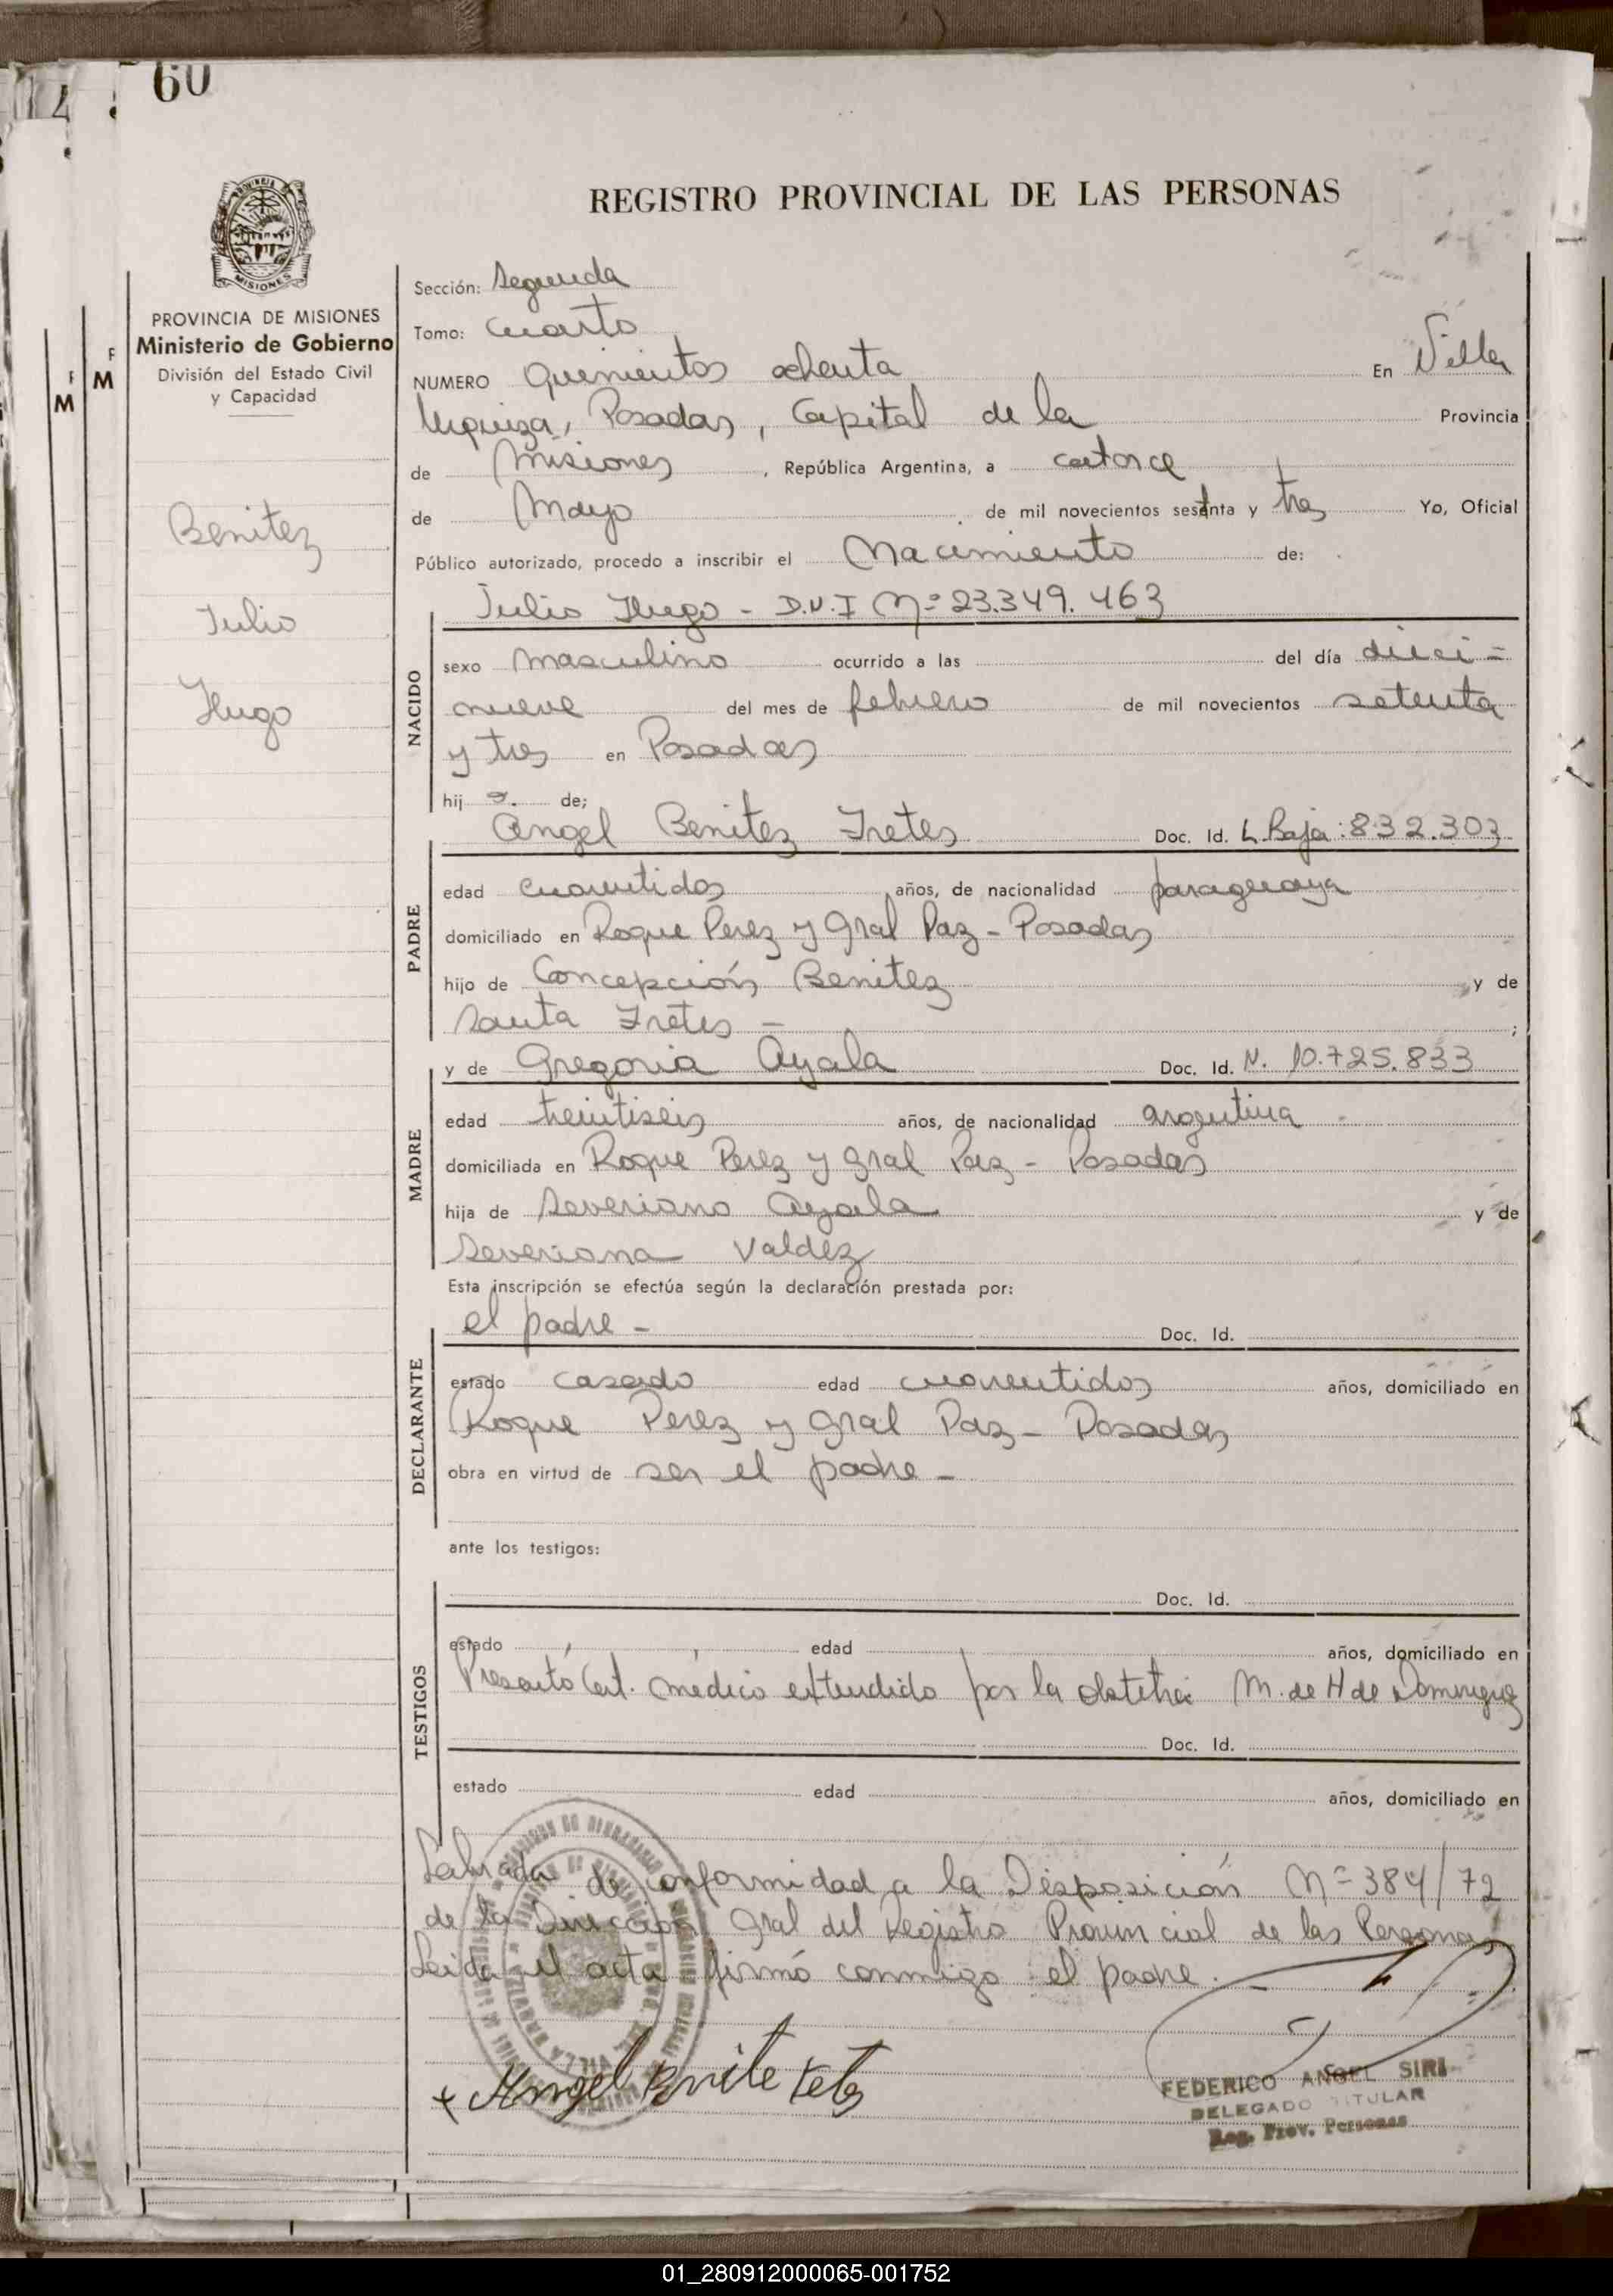 60
REGISTRO PROVINCIAL DE LAS PERSONAS
MISIONES
PROVINCIA DE MISIONES
Ministerio de Gobierno
División del Estado Civil
y Capacidad
Benitez
Julio
Hugo
Sección: Segunda
Tomo: Cuarto
NUMERO Quinientos ochenta En Villa
Urquiza, Posadas, Capital de la Provincia
de Misiones, República Argentina, a catorce
de Mayo de mil novecientos setenta y tres Yo, Oficial
Público autorizado, procedo a inscribir el Nacimiento de:
Julio Hugo - D.N.I Nº 23.349.463
NACIDO
sexo masculino ocurrido a las del día dieci=
nueve del mes de febrero de mil novecientos setenta
y tres en Posadas
hij o. de;
Angel Benitez Fretes Doc. Id. L. Baja: 832.303
PADRE
edad cuarentidos años, de nacionalidad paraguaya
domiciliado en Roque Perez y Gral Paz - Posadas
hijo de Concepción Benitez y de
Santa Fretes - ;
y de Gregoria Ayala Doc. Id. N. 10.725.833
MADRE
edad treintiseis años, de nacionalidad argentina -
domiciliada en Roque Perez y Gral Paz - Posadas
hija de Severiano Ayala y de
Severiana Valdez
Esta inscripción se efectúa según la declaración prestada por:
el padre - Doc. Id.
DECLARANTE
estado casado edad cuarentidos años, domiciliado en
Roque Perez y Gral Paz - Posadas
obra en virtud de ser el padre -
ante los testigos:
Doc. Id.
TESTIGOS
estado edad años, domiciliado en
Presentó Cert. médico extendido por la obstetra M. de H de Dominguez
Doc. Id.
estado edad años, domiciliado en
Labrada de conformidad a la Disposición Nº 384/72
de la Dirección Gral del Registro Provincial de las Personas
Leida el acta firmó conmigo el padre.
x Angel
FEDERICO ANGEL SIRI
DELEGADO TITULAR
Reg. Prov. Personas
01_280912000065-001752